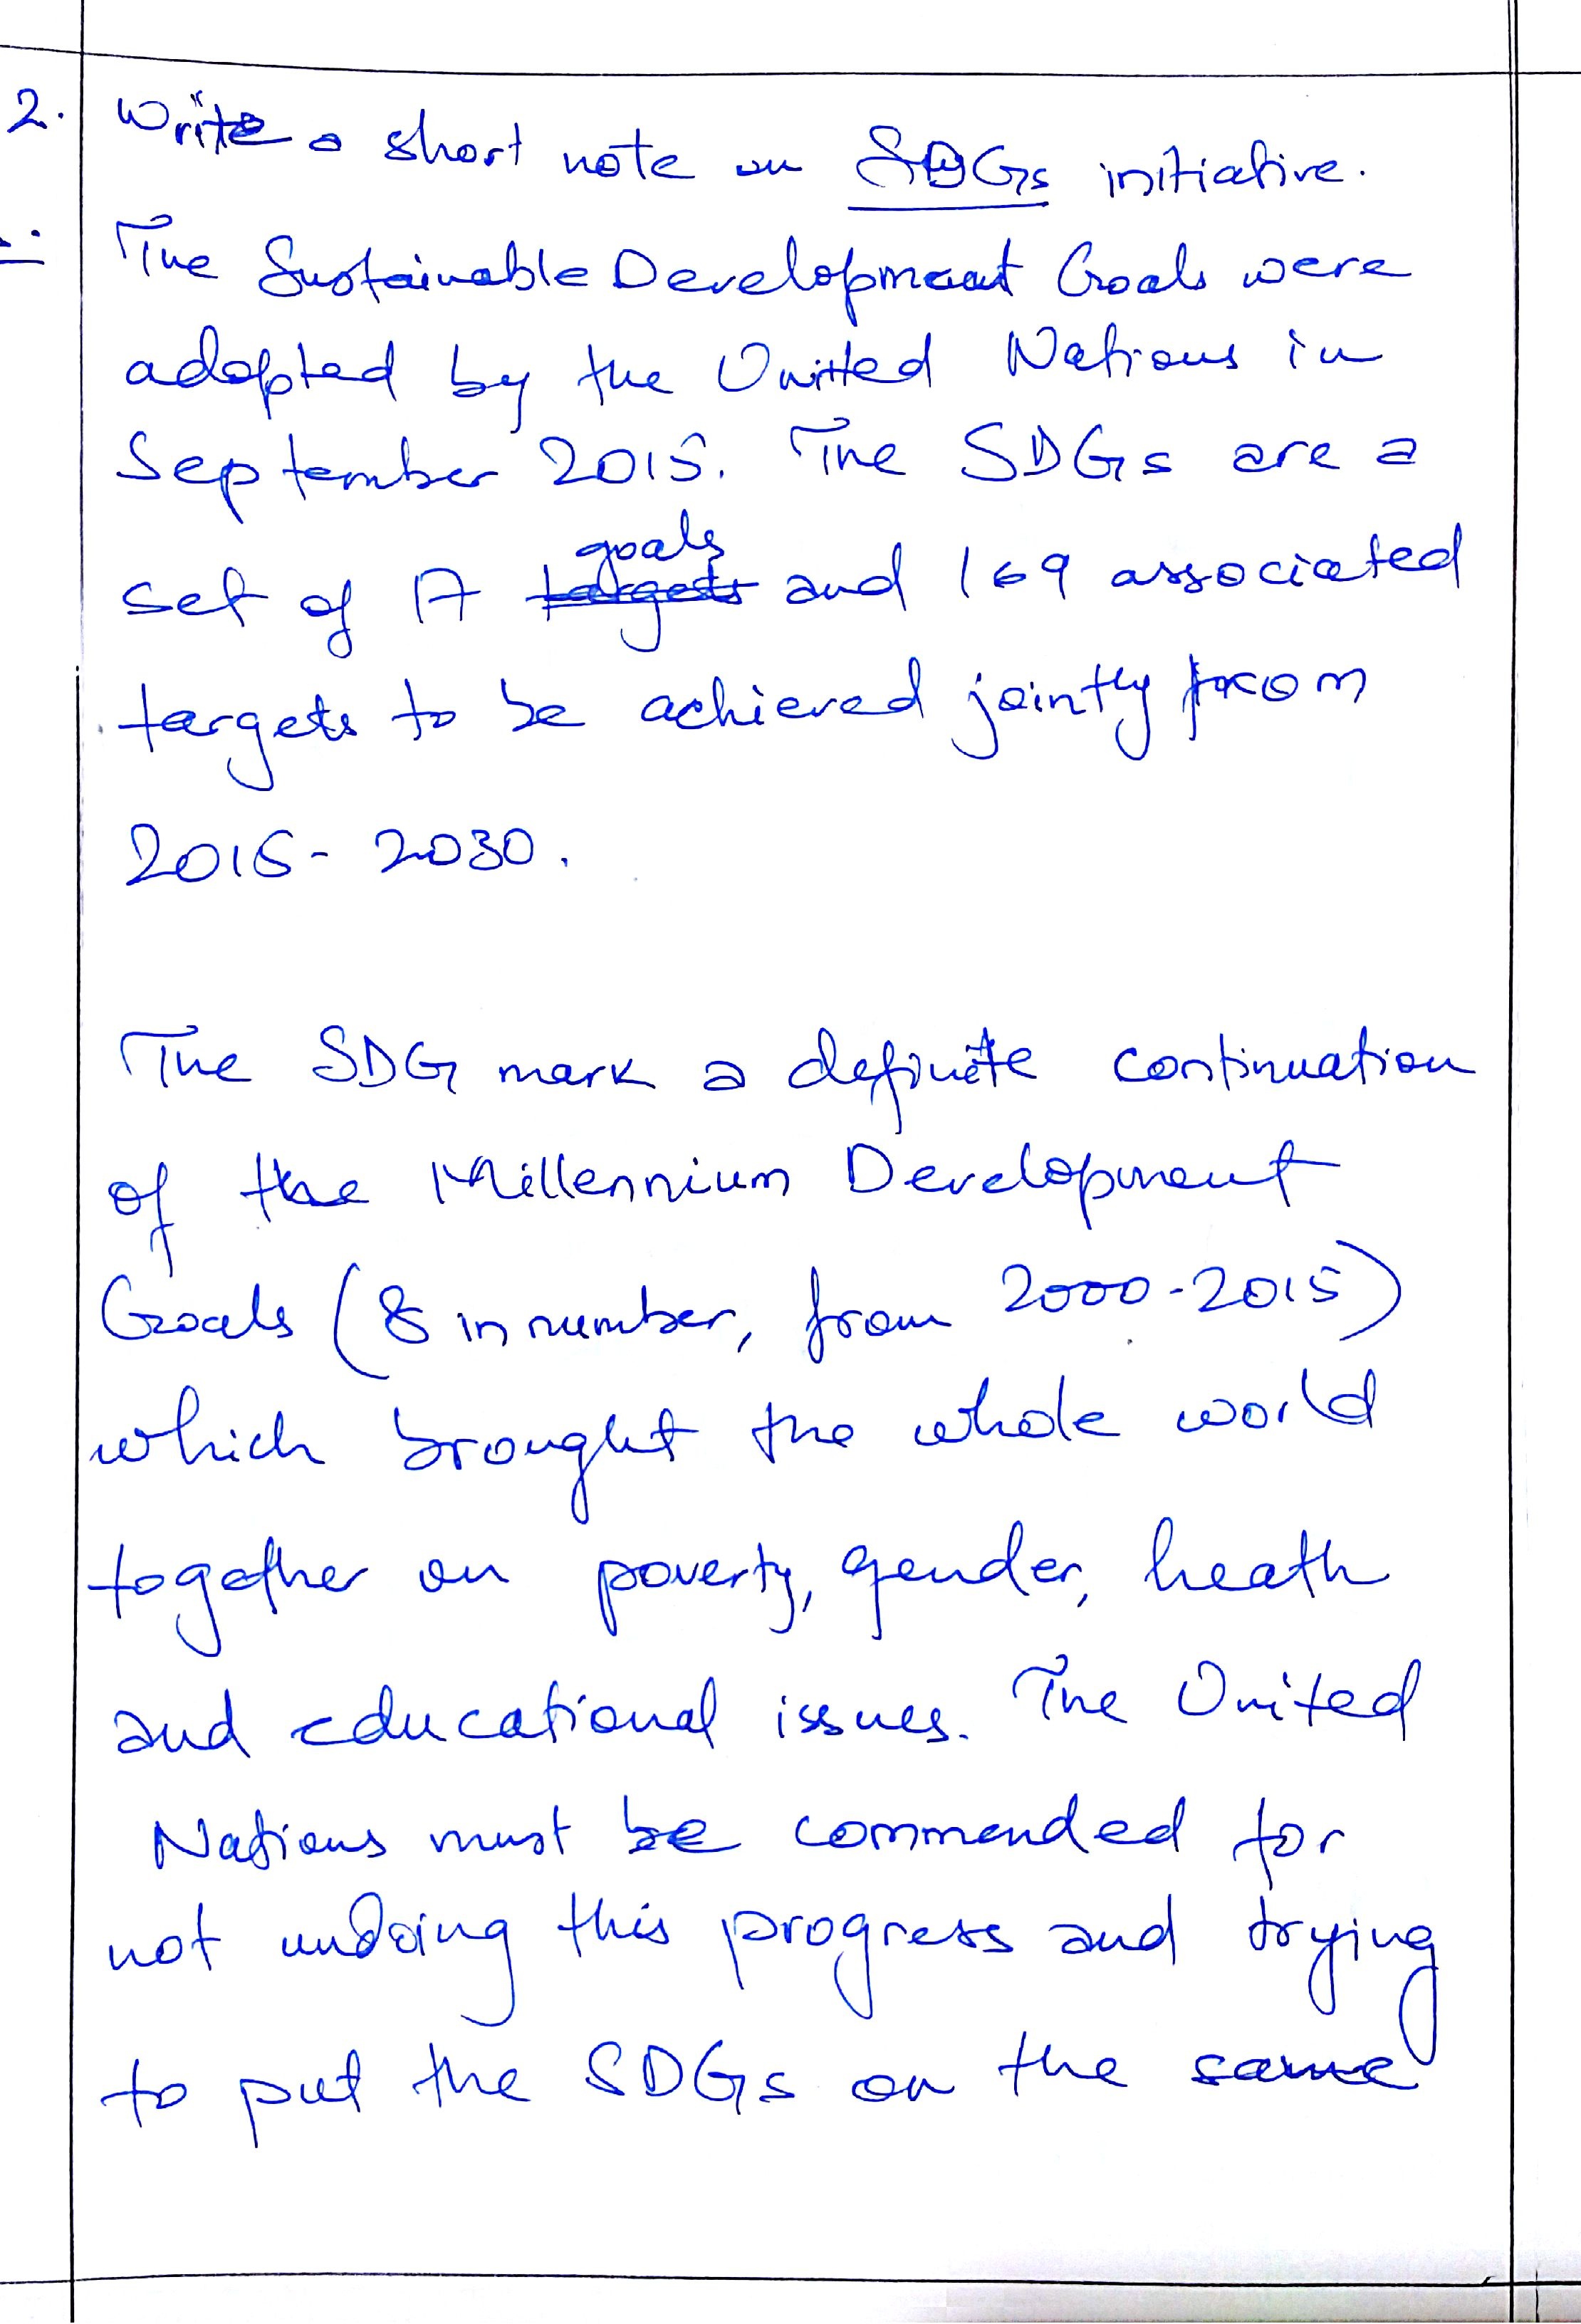 2. Write a short note on SDGs initiative.
The Sustainable Development Goals were
adopted by the United Nations in
September 2015. The SDGs are a
goals
set of 17 targets and 169 associated
targets to be achieved jointly from
2015-2030.
The SDG mark a definite continuation
of the Millennium Development
Goals (8 in number, from 2000-2015)
which brought the whole world
together on poverty, gender, heath
and educational issues. The United
Nations must be commended for
not undoing this progress and trying
to put the SDGs on the same